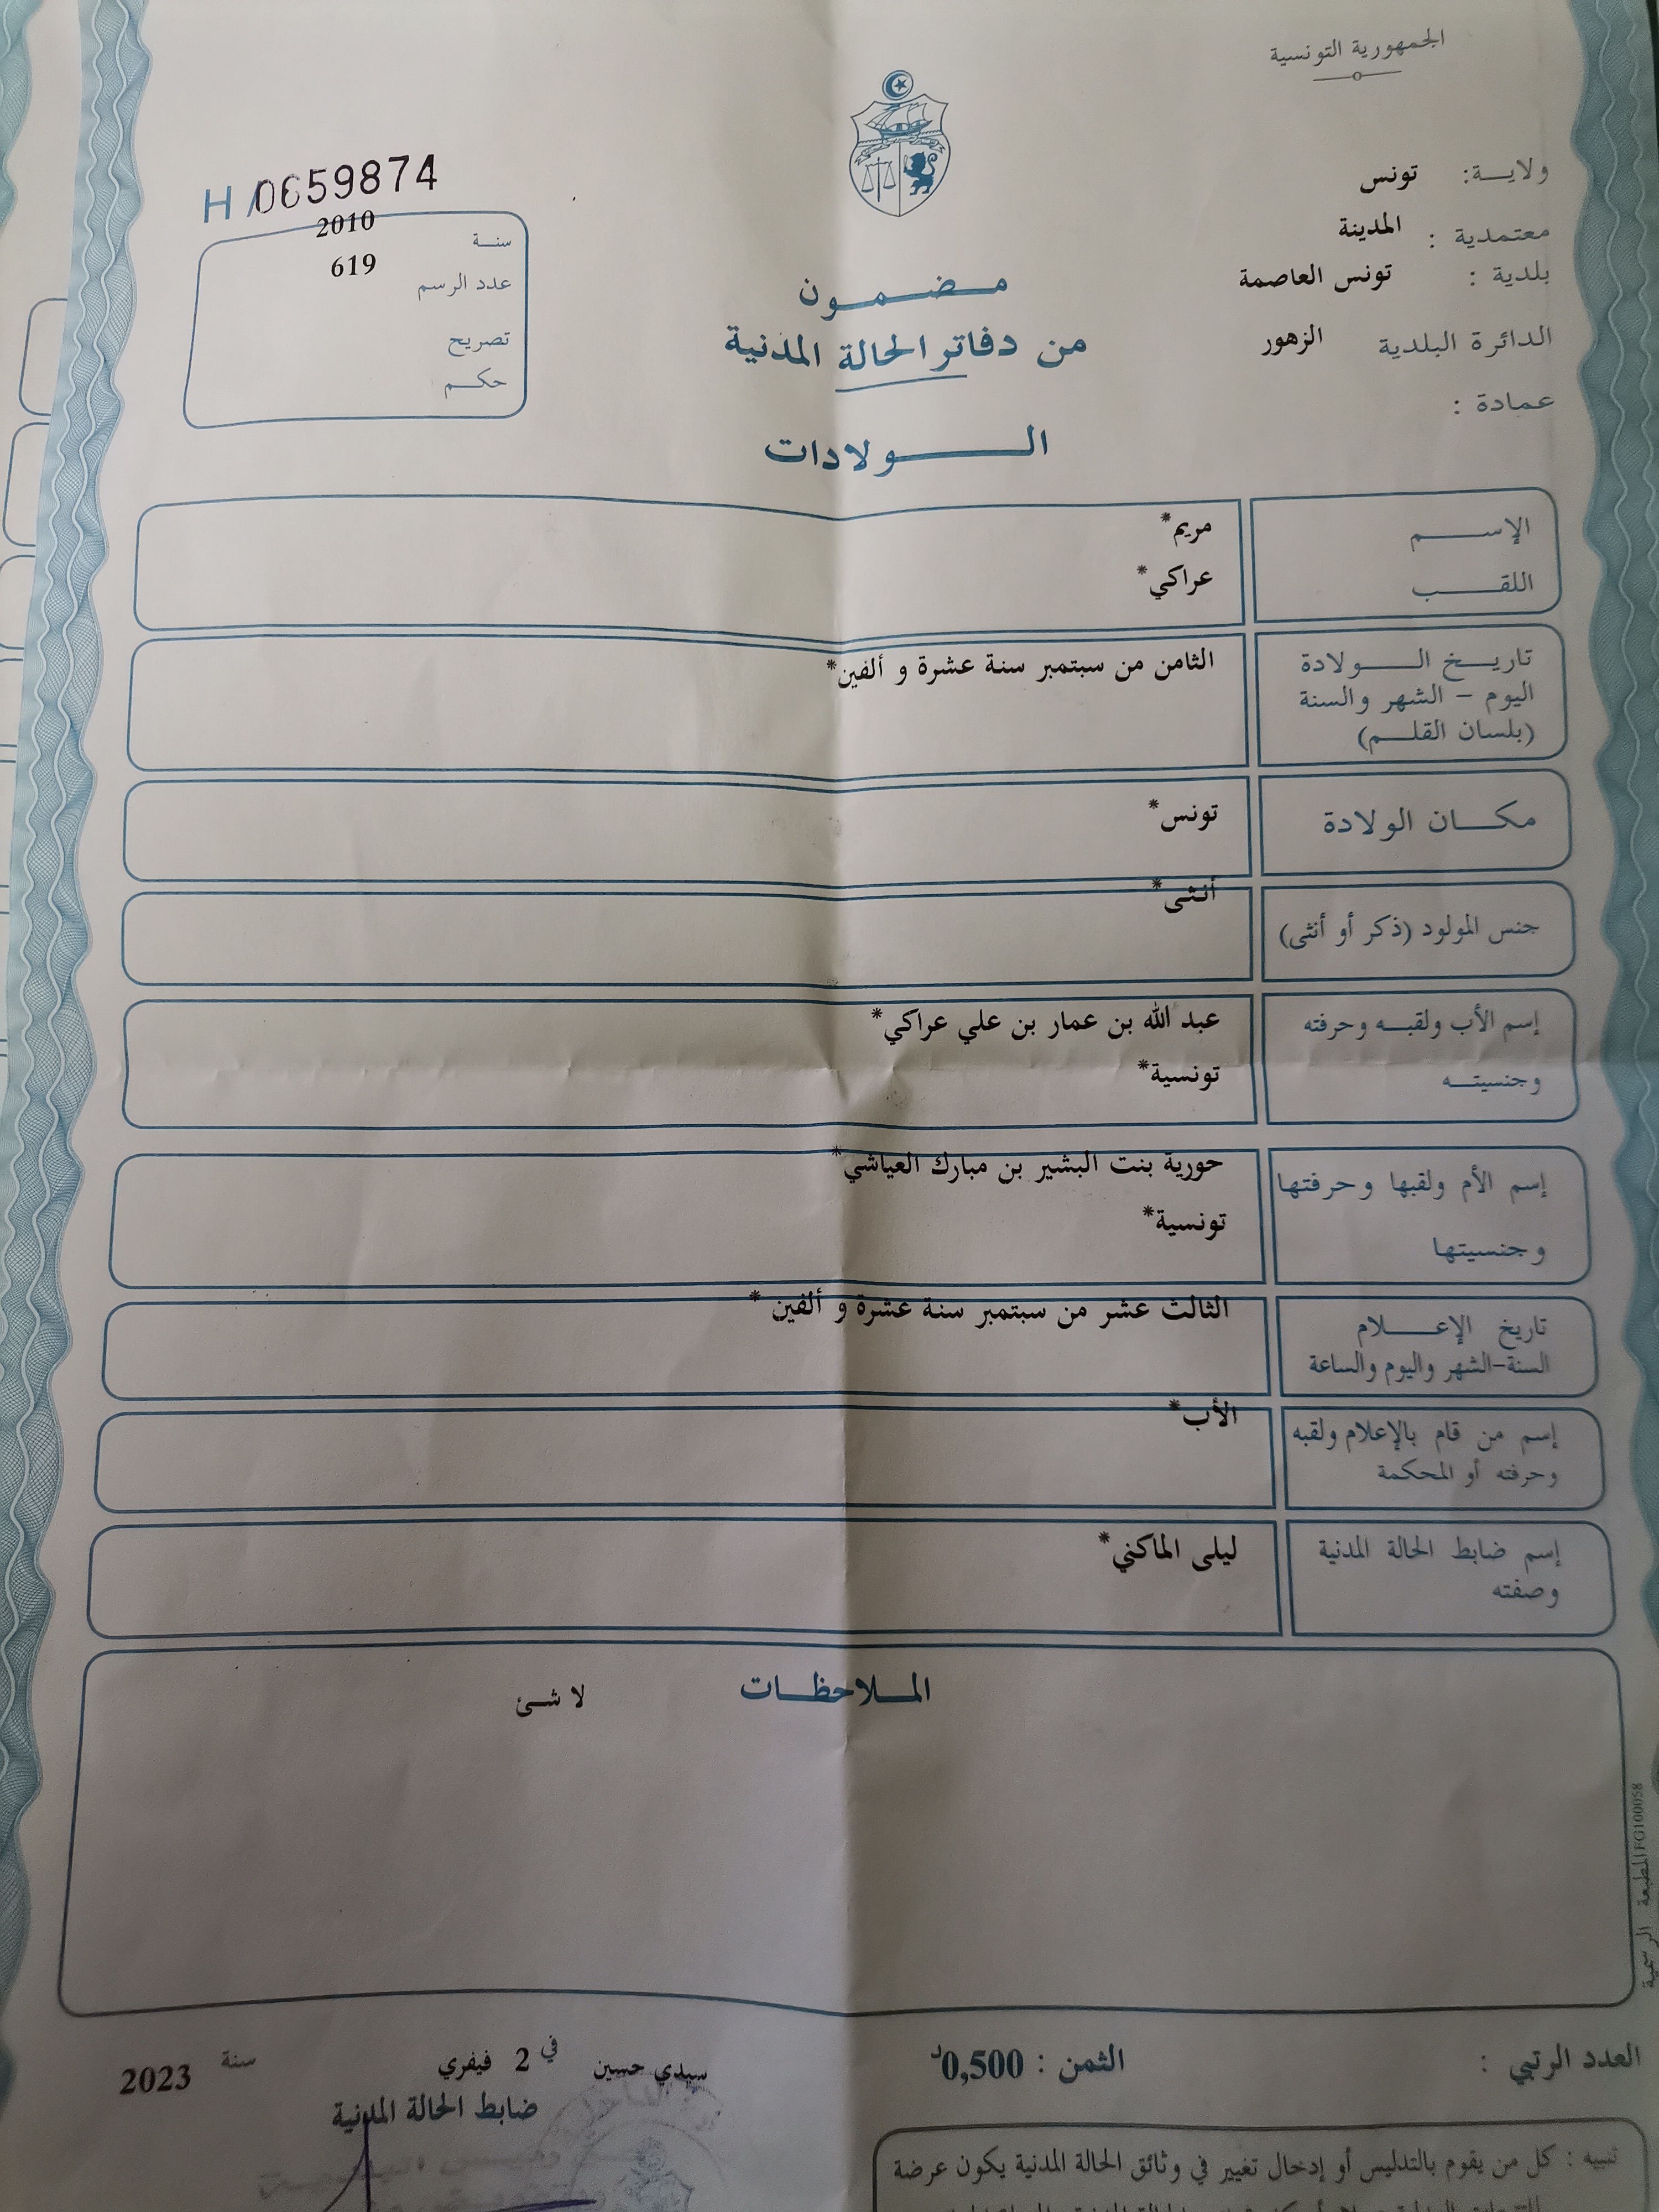 الجمهورية التونسية
ولاية: تونس
معتمدية : المدينة
بلدية : تونس العاصمة
الدائرة البلدية الزهور
عمادة :
H/0659874
سنة 2010
عدد الرسم 619
تصريح
حكم
مضمون
من دفاتر الحالة المدنية
الولادات
الإسم مريم*
اللقب عراكي*
تاريخ الولادة الثامن من سبتمبر سنة عشرة و ألفين*
اليوم - الشهر والسنة
(بلسان القلم)
مكان الولادة تونس*
جنس المولود (ذكر أو أنثى) أنثى*
إسم الأب ولقبه وحرفته عبد الله بن عمار بن علي عراكي*
وجنسيته تونسية*
إسم الأم ولقبها وحرفتها حورية بنت البشير بن مبارك العياشي*
وجنسيتها تونسية*
تاريخ الإعلام الثالث عشر من سبتمبر سنة عشرة و ألفين *
السنة-الشهر واليوم والساعة
إسم من قام بالإعلام ولقبه الأب*
وحرفته أو المحكمة
إسم ضابط الحالة المدنية ليلى الماكني*
وصفته
الملاحظات لا شئ
المطبعة الرسمية FG100058
العدد الرتبي : الثمن : 0,500د
سيدي حسين في 2 فيفري سنة 2023
ضابط الحالة المدنية
تنبيه : كل من يقوم بالتدليس أو إدخال تغيير في وثائق الحالة المدنية يكون عرضة